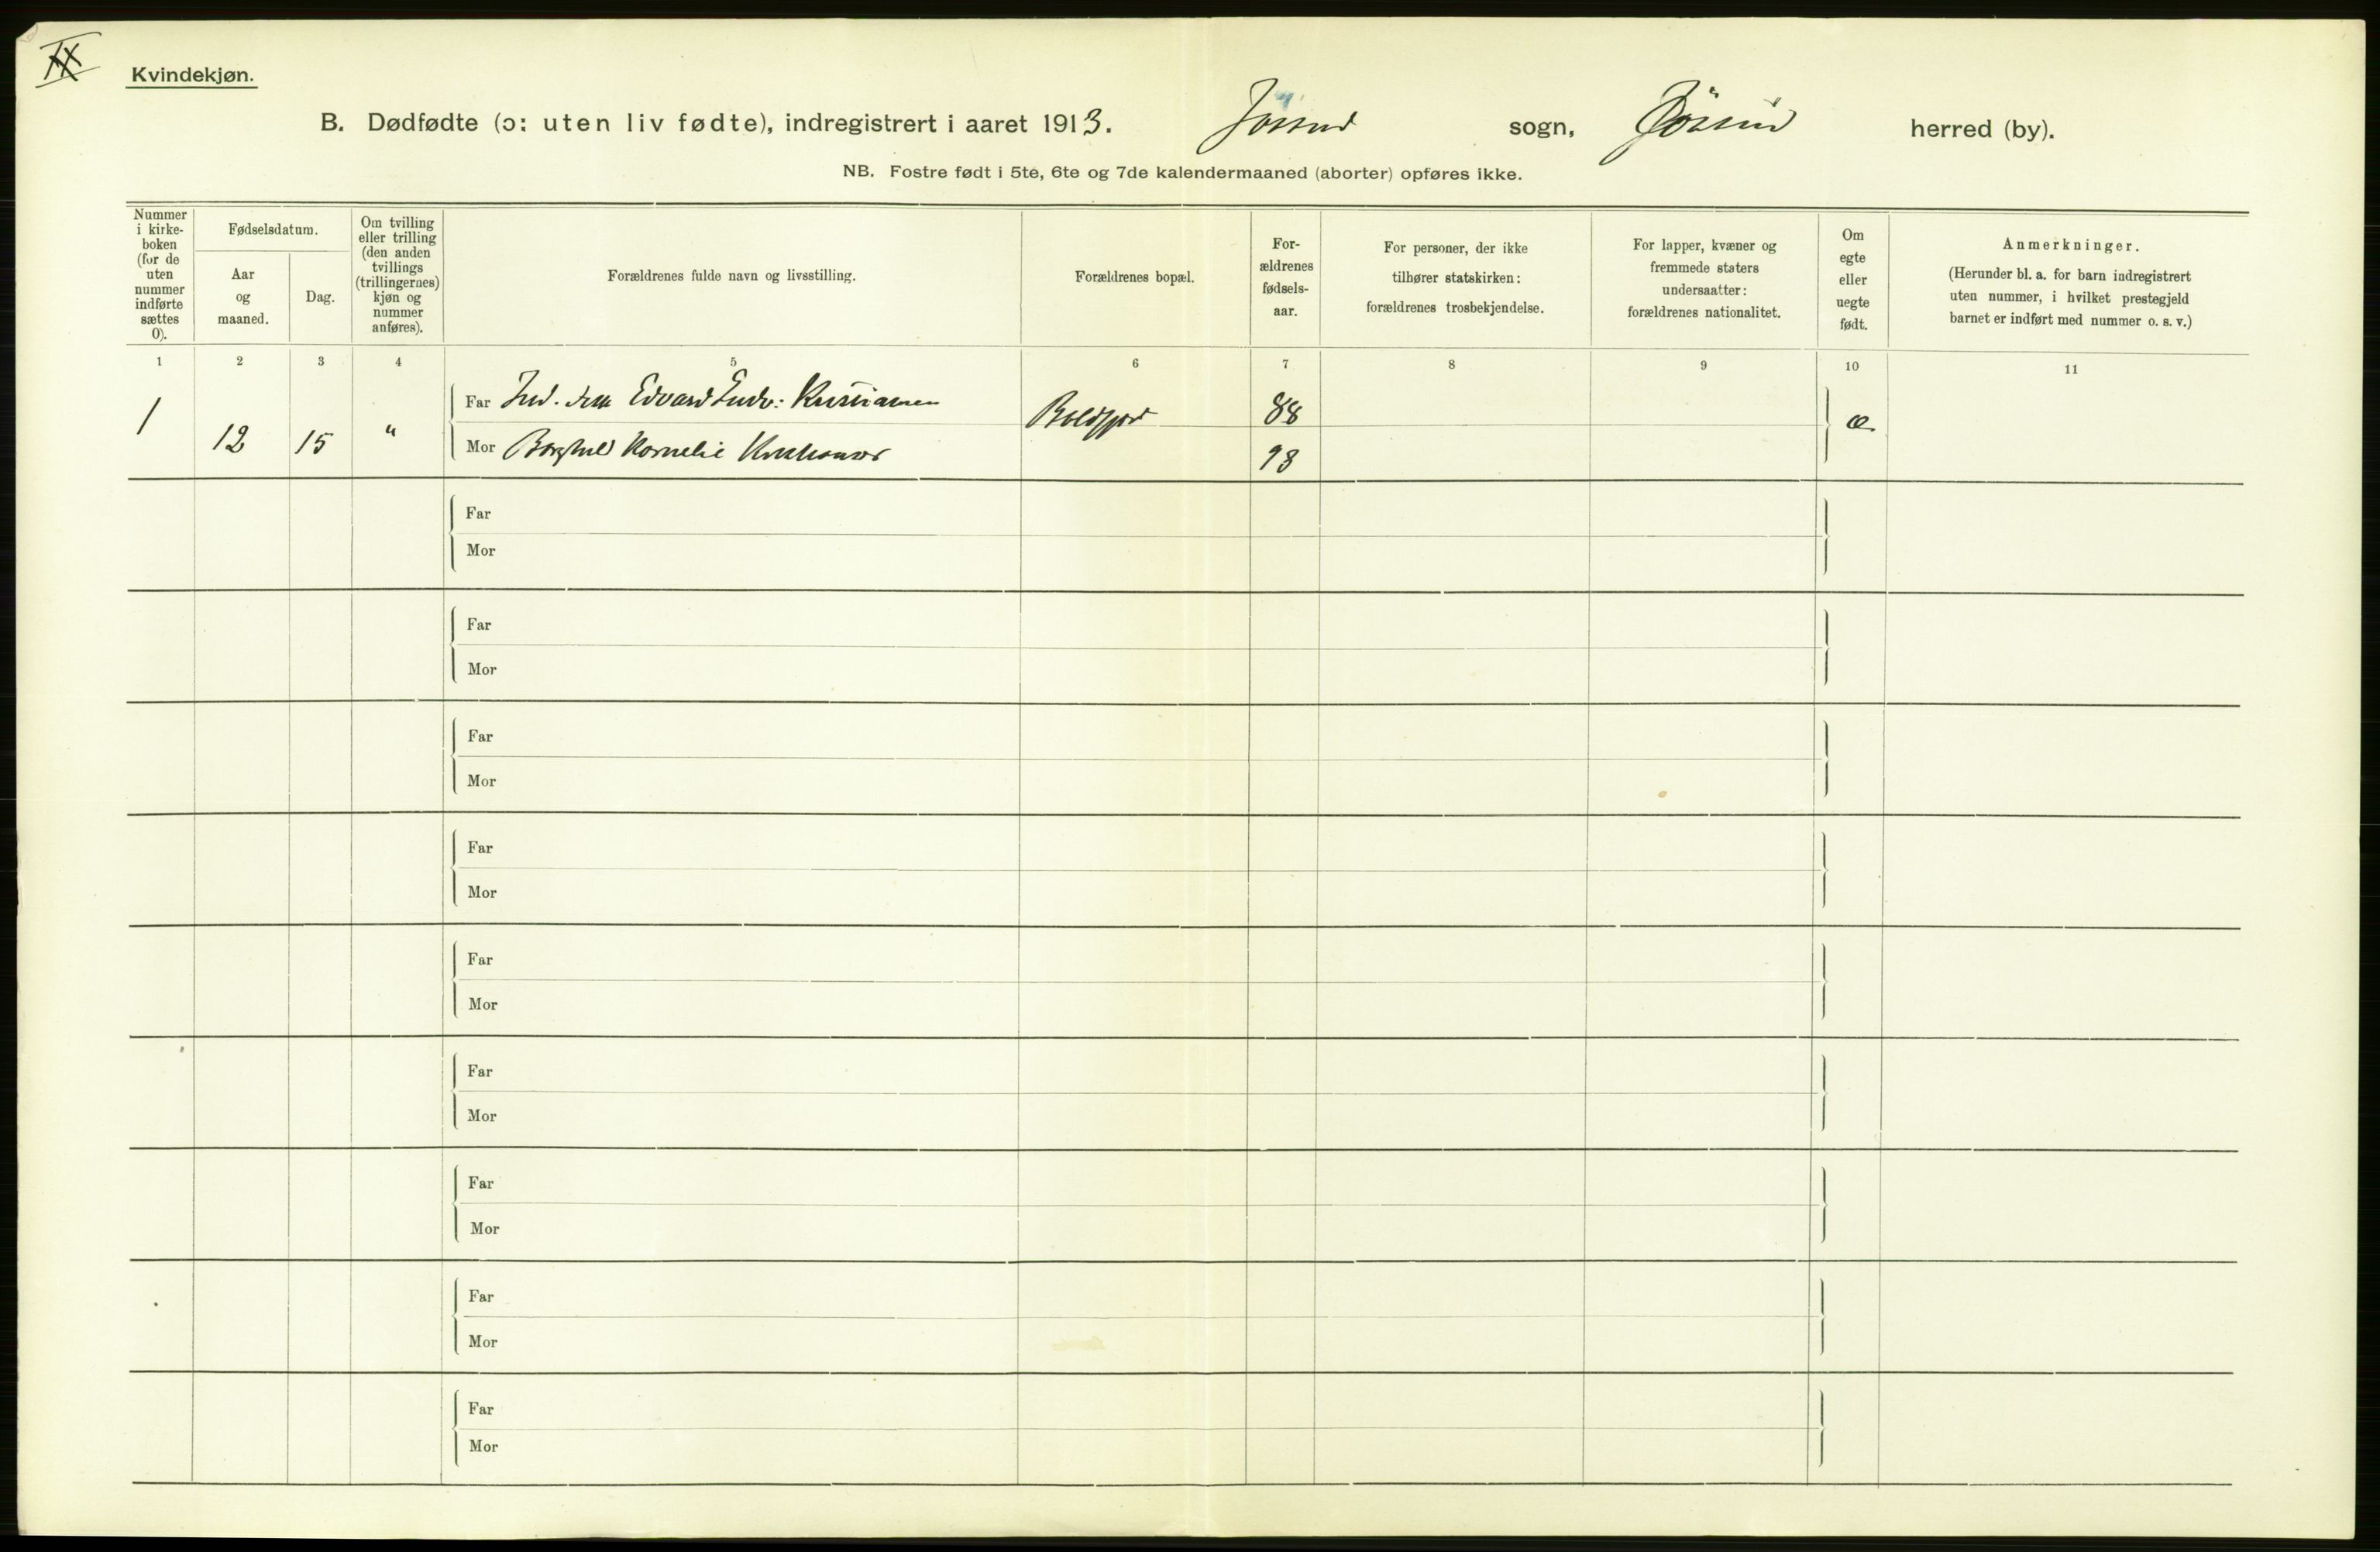 Kvindekjøn.
B. Dødfødte (ɔ: uten liv fødte), indregistrert i aaret 1913. Jøssund sogn, Jøssund herred (by).
NB. Fostre født i 5te, 6te og 7de kalendermaaned (aborter) opføres ikke.
Nummer i kirke-boken (for de uten nummer indførte sættes 0).
Fødselsdatum.
Aar og maaned.
Dag.
Om tvilling eller trilling (den anden tvillings (trillingernes) kjøn og nummer anføres).
Forældrenes fulde navn og livsstilling.
Forældrenes bopæl.
For-ældrenes fødsels-aar.
For personer, der ikke tilhører statskirken: forældrenes trosbekjendelse.
For lapper, kvæner og fremmede staters undersaatter: forældrenes nationalitet.
Om egte eller uegte født.
Anmerkninger.
(Herunder bl. a. for barn indregistrert uten nummer, i hvilket prestegjeld barnet er indført med nummer o. s. v.)
1 2 3 4 5 6 7 8 9 10 11
1 12 15 "
Far Ind. Edvard Kristiansen 88 æ.
Mor Borghild Kornelie 93
Far
Mor
Far
Mor
Far
Mor
Far
Mor
Far
Mor
Far
Mor
Far
Mor
Far
Mor
Far
Mor